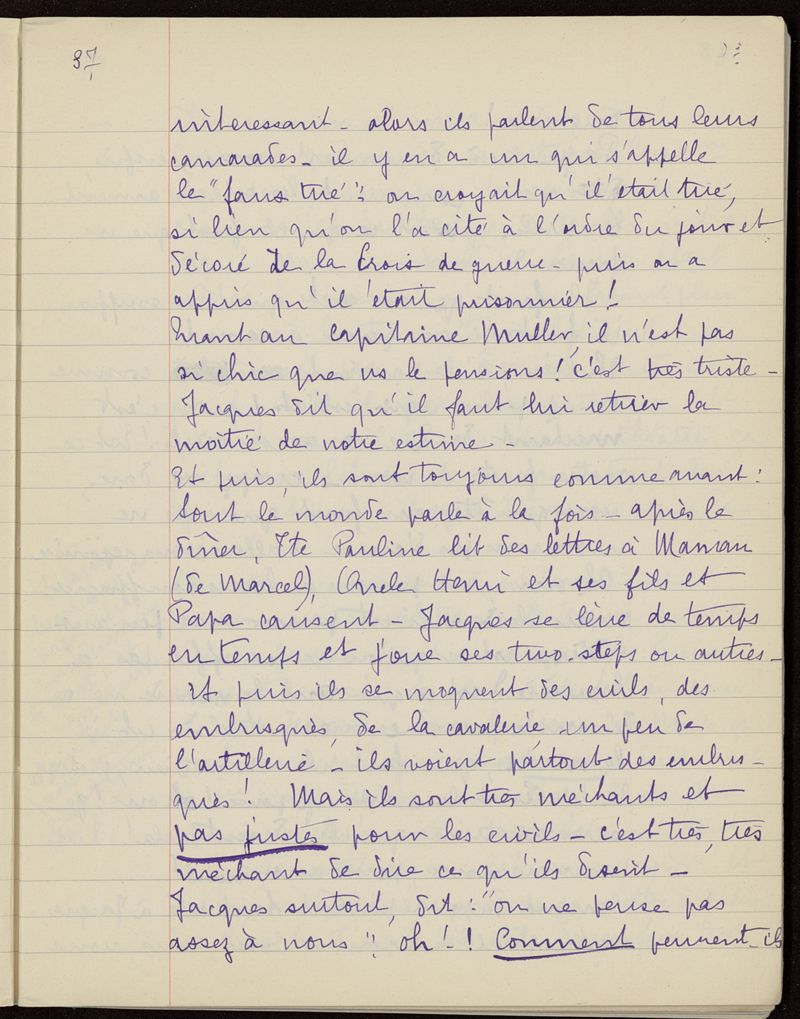 37
intéressant - alors ils parlent de tous leurs
camarades - il y en a un qui s'appelle
le "faux tué": on croyait qu'il était tué,
si bien qu'on l'a cité à l'ordre du jour et
décoré de la Croix de guerre - puis on a
appris qu'il était prisonnier!
Quant au capitaine Muller, il n'est pas
si chic que ns le pensions! c'est très triste -
Jacques dit qu'il faut lui retirer la
moitié de notre estime -
Et puis, ils sont toujours comme avant:
tout le monde parle à la fois - après le
dîner, Tte Pauline lit des lettres à Maman
(de Marcel), Oncle Henri et ses fils et
Papa causent - Jacques se lève de temps
en temps et joue ses two-steps ou autres -
Et puis ils se moquent des civils, des
embusqués, de la cavalerie, un peu de
l'artillerie - ils voient partout des embus-
qués! Mais ils sont très méchants et
pas justes pour les civils - c'est très, très
méchant de dire ce qu'ils disent -
Jacques surtout, dit: "on ne pense pas
assez à nous"! oh! - ! Comment peuvent-ils